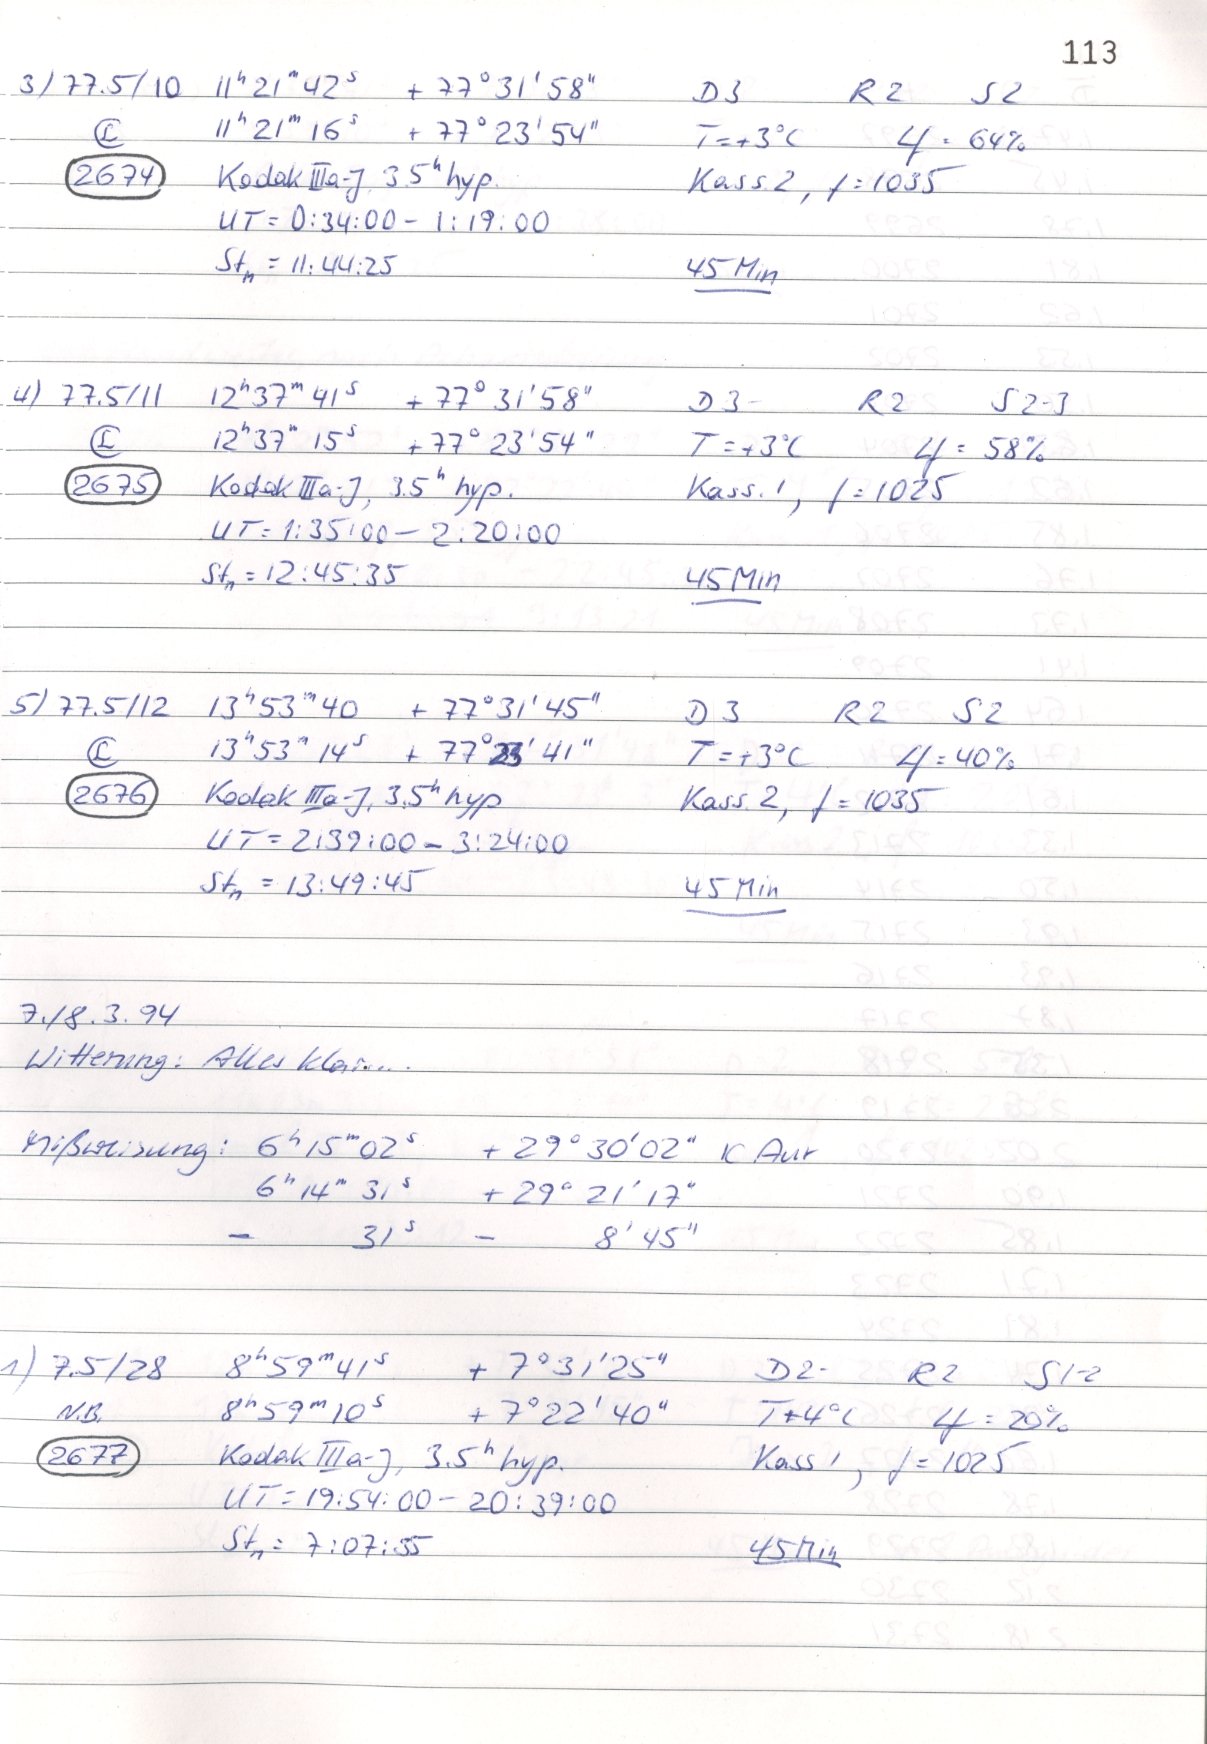 113
3) 77.5/10 11ʰ21ᵐ42ˢ +77°31'58" D3 R2 S2
11ʰ21ᵐ16ˢ +77°23'54" T=+3°C φ=64%
2674 Kodak IIIa-J, 3.5ʰ hyp. Kass. 2, f=1035
UT=0:34:00-1:19:00
Stₙ=11:44:25 45 Min
4) 77.5/11 12ʰ37ᵐ41ˢ +77°31'58" D3- R2 S2-3
12ʰ37ᵐ15ˢ +77°23'54" T=+3°C φ=58%
2675 Kodak IIIa-J, 3.5ʰ hyp. Kass. 1, f=1025
UT=1:35:00-2:20:00
Stₙ=12:45:35 45 Min
5) 77.5/12 13ʰ53ᵐ40 +77°31'45" D3 R2 S2
13ʰ53ᵐ14ˢ +77°23'41" T=+3°C φ=40%
2676 Kodak IIIa-J, 3.5ʰ hyp Kass. 2, f=1035
UT=2:39:00-3:24:00
Stₙ=13:49:45 45 Min
7./8.3.94
Witterung: Alles klar....
Mißweisung: 6ʰ15ᵐ02ˢ +29°30'02" κ Aur
6ʰ14ᵐ31ˢ +29°21'17"
- 31ˢ - 8'45"
1) 7.5/28 8ʰ59ᵐ41ˢ +7°31'25" D2- R2 S1-2
N.B. 8ʰ59ᵐ10ˢ +7°22'40" T+4°C φ=20%
2677 Kodak IIIa-J, 3.5ʰ hyp. Kass 1, f=1025
UT=19:54:00-20:39:00
Stₙ=7:07:35 45 Min